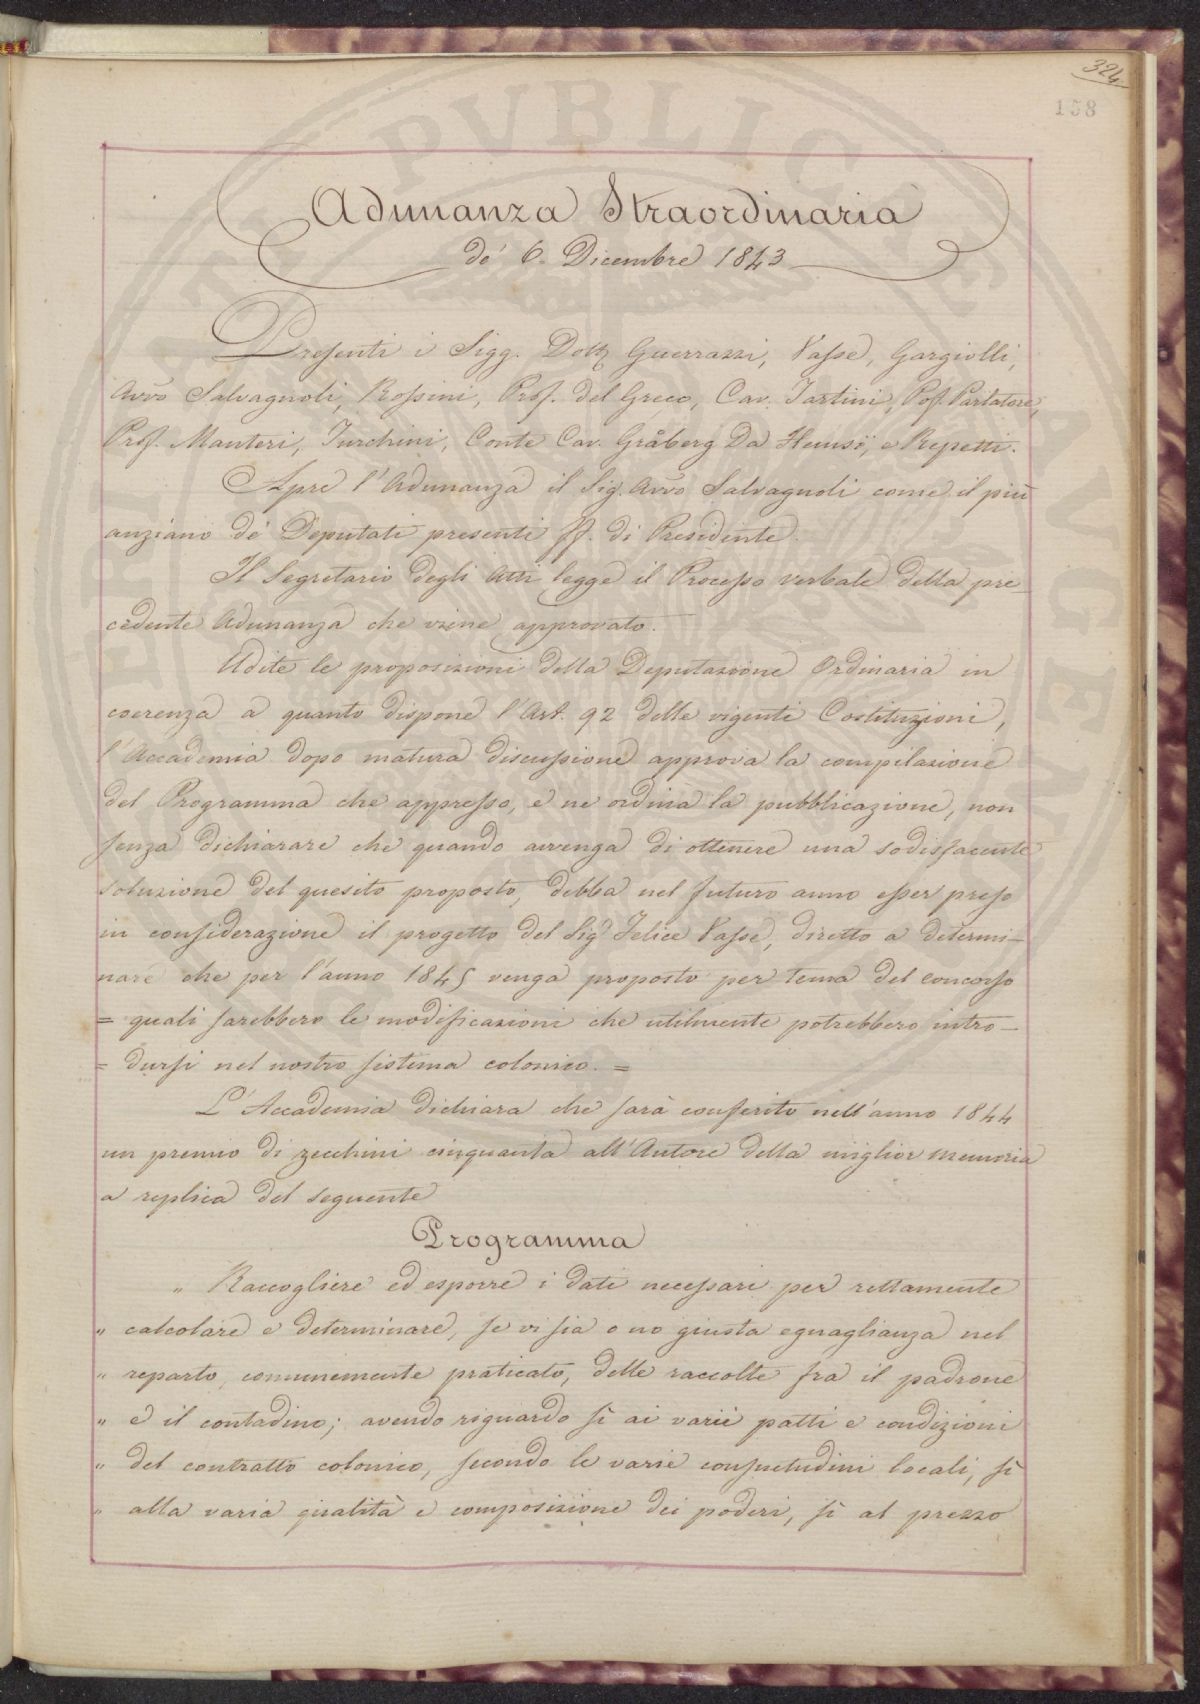 324
158
Adunanza Straordinaria
de' 6. Dicembre 1843
Presenti i Sigg. Dott Guerrazzi, Passe, Gargiolli,
Avvo Salvagnoli, Rossini, Prof. Del Greco, Cav. Tartini, Pof. Parlatore,
Prof. Manteri, Turchini, Conte Cav. Gråberg Da Hemsö, e Repetti.
Apre l'Adunanza il Sig. Avvo Salvagnoli come il più
anziano de' Deputati presenti ff. di Presidente.
Il Segretario degli Atti legge il Processo verbale della pre-
cedente Adunanza che viene approvato.
Udite le proposizioni della Deputazione Ordinaria in
coerenza a quanto dispone l'Art. 92 delle vigenti Costituzioni,
l'Accademia dopo matura discussione approva la compilazione
del Programma che appresso, e ne ordina la pubblicazione, non
senza dichiarare che quando avvenga di ottenere una sodisfacente
soluzione del quesito proposto, debba nel futuro anno esser preso
in considerazione il progetto del Sigr Felice Passe, diretto a determi-
nare che per l'anno 1845 venga proposto per tema del concorso
= quali sarebbero le modificazioni che utilmente potrebbero intro-
= dursi nel nostro sistema colonico. =
L'Accademia dichiara che sarà conferito nell'anno 1844
un premio di zecchini cinquanta all'Autore della miglior memoria
a replica del seguente
Programma
" Raccogliere ed esporre i dati necessari per rettamente
" calcolare e determinare, se vi sia o no giusta eguaglianza nel
" reparto, comunemente praticato, delle raccolte fra il padrone
" e il contadino; avendo riguardo sì ai varii patti e condizioni
" del contratto colonico, secondo le varie consuetudini locali, sì
" alla varia qualità e composizione dei poderi, sì al prezzo